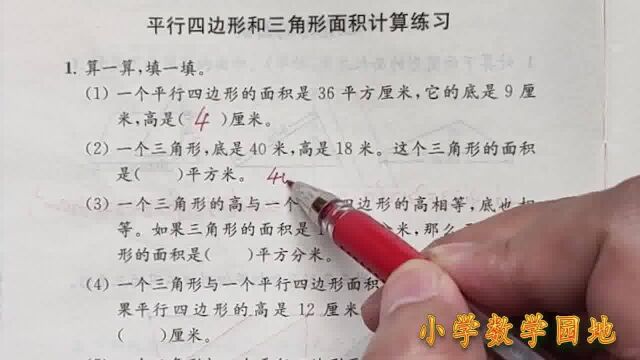 平行四边形和三角形面积计算练习
1. 算一算,填一填。
(1) 一个平行四边形的面积是 36 平方厘米,它的底是 9 厘
米,高是( 4 )厘米。
(2) 一个三角形,底是 40 米,高是 18 米。这个三角形的面积
是( )平方米。 40
(3) 一个三角形的高与一个 四边形的高相等,底也相
等。如果三角形的面积是 米,那么
形的面积是( )平方分米。
(4) 一个三角形与一个平行四边形面积
果平行四边形的高是 12 厘米
( )厘米。
小学数学园地